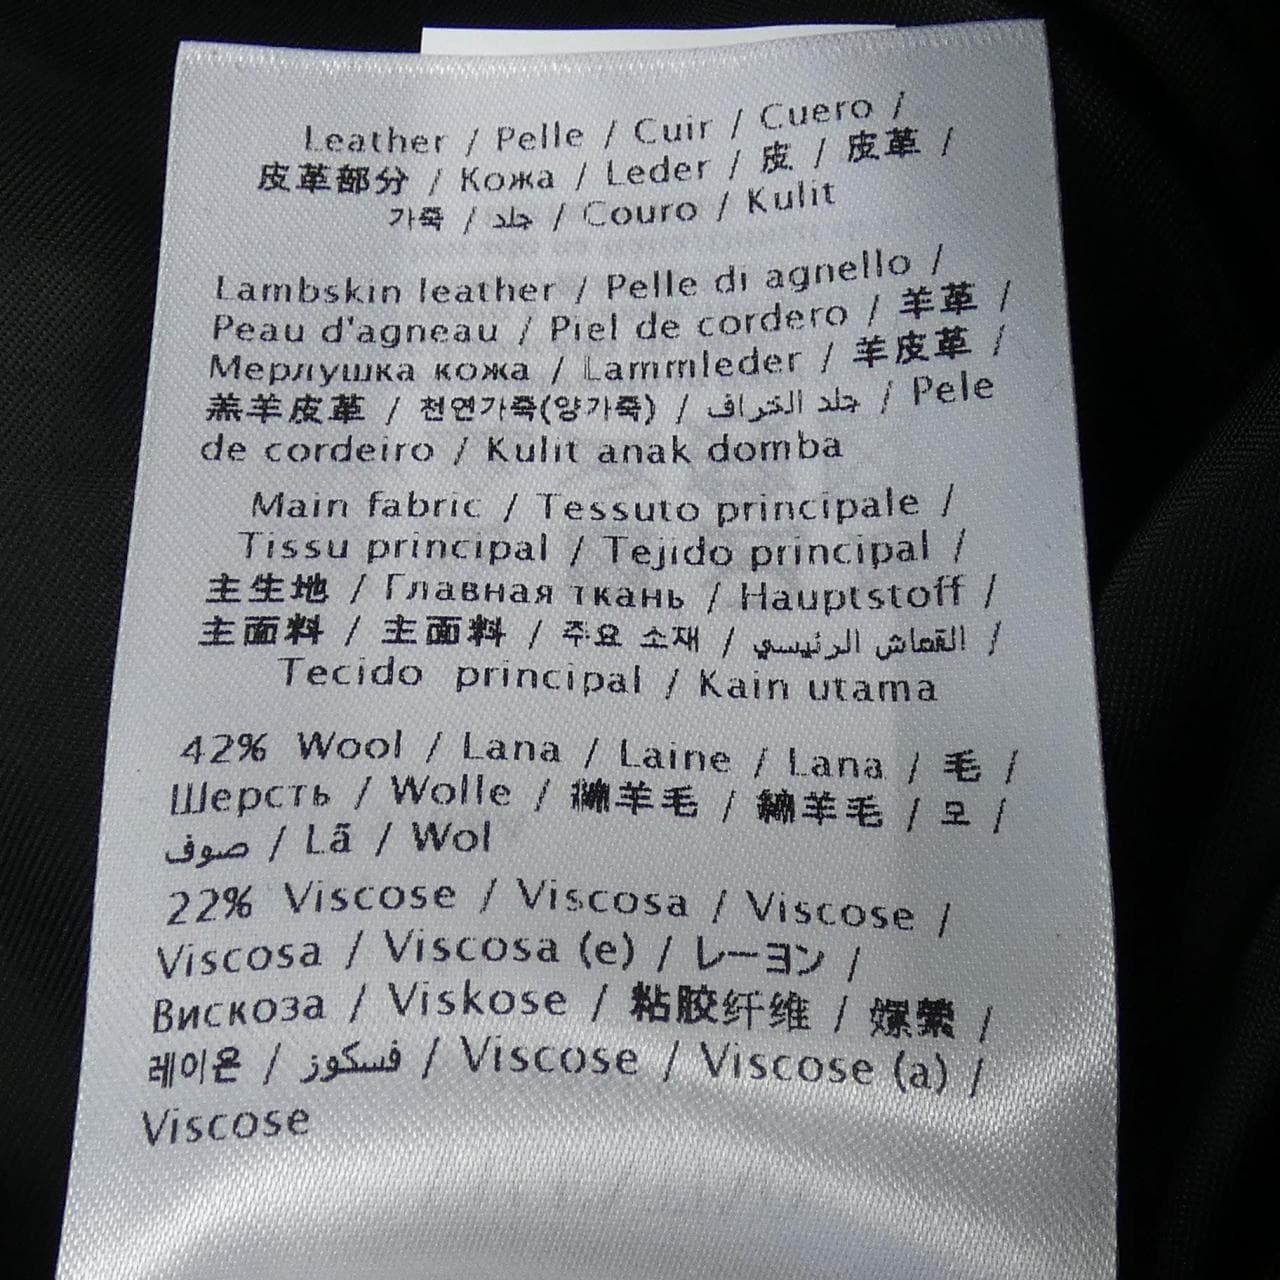 Leather / Pelle / Cuir / Cuero /
皮革部分 / Кожа / Leder / 皮 / 皮革 /
가죽 / جلد / Couro / Kulit
Lambskin leather / Pelle di agnello /
Peau d'agneau / Piel de cordero / 羊革 /
Мерлушка кожа / Lammleder / 羊皮革 /
羔羊皮革 / 천연가죽(양가죽) / جلد الخراف / Pele
de cordeiro / Kulit anak domba
Main fabric / Tessuto principale /
Tissu principal / Tejido principal /
主生地 / Главная ткань / Hauptstoff /
主面料 / 主面料 / 주요 소재 / القماش الرئيسي /
Tecido principal / Kain utama
42% Wool / Lana / Laine / Lana / 毛 /
Шерсть / Wolle / 綿羊毛 / 綿羊毛 / 모 /
صوف / Lã / Wol
22% Viscose / Viscosa / Viscose /
Viscosa / Viscosa (e) / レーヨン /
Вискоза / Viskose / 粘胶纤维 / 嫘縈 /
레이온 / فسكوز / Viscose / Viscose (a) /
Viscose